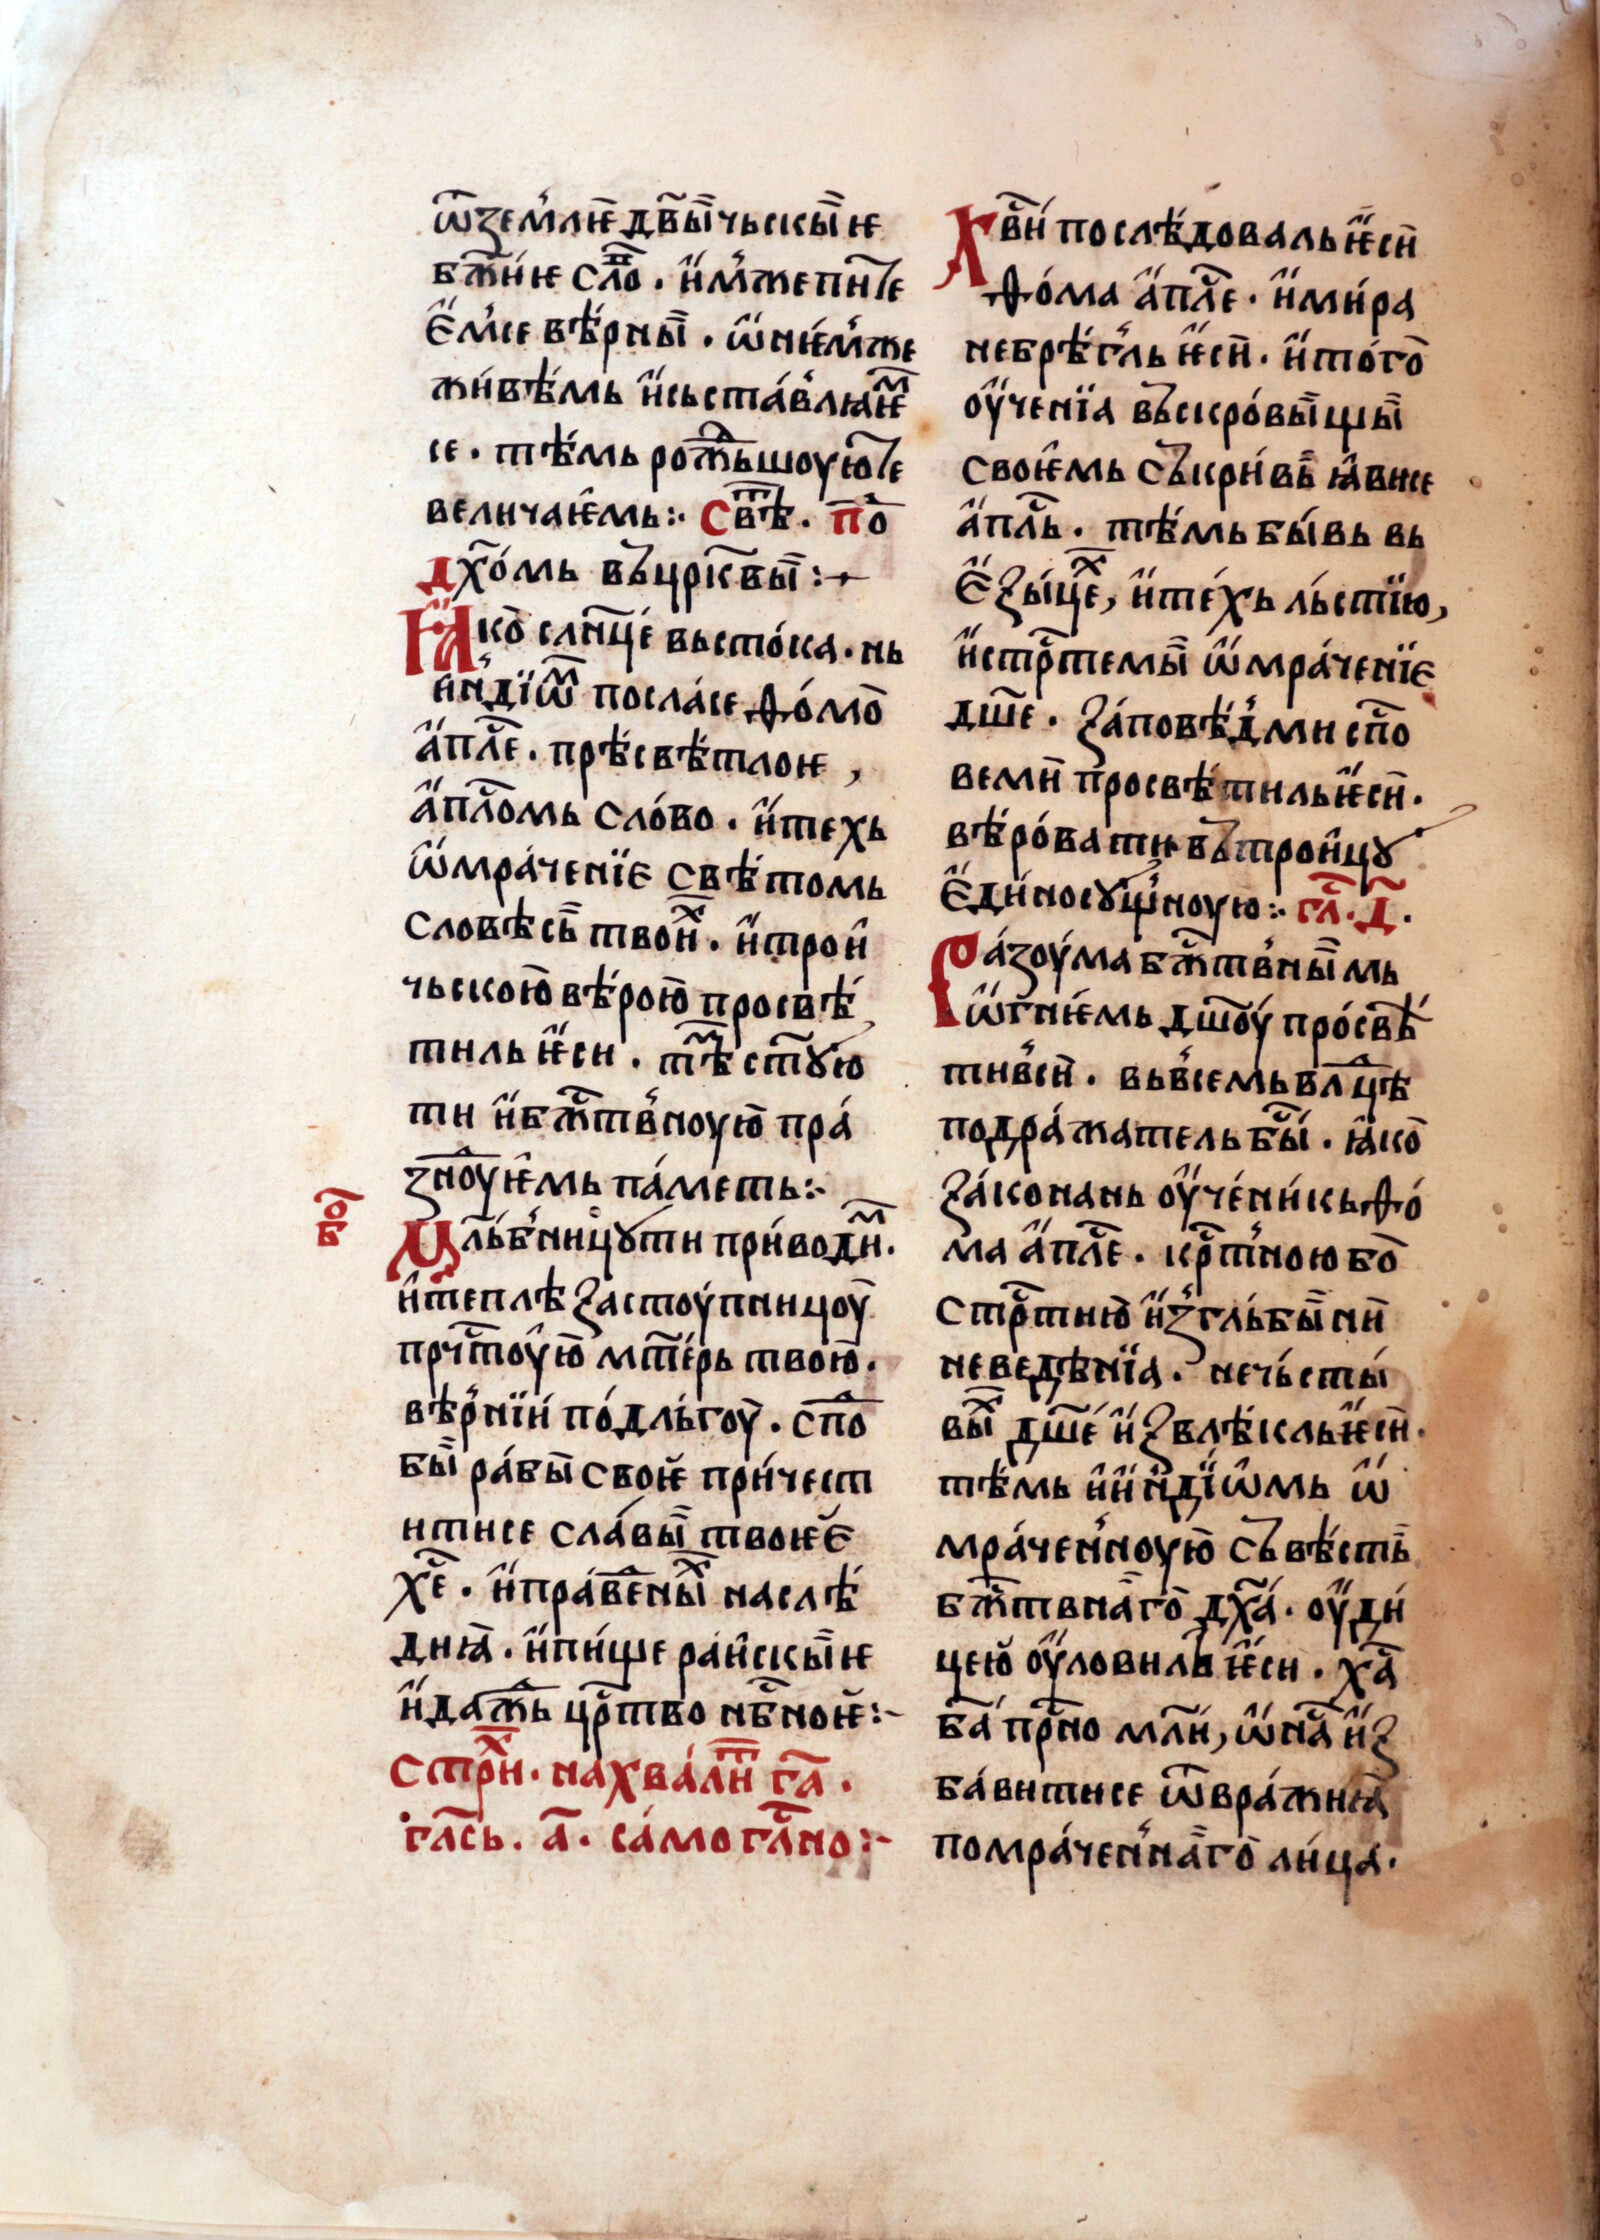 ѿземлѥ̀ двы҃чьскыѥ
бж҃їиѥ сло́. и҆мже пите
є҆мсе вѣ́рныѝ. ѡ҆ ниѥ́мже
жи́вѣмь и҆ сьста́влꙗѥм
се. тѣ́мь рожⷣьшоую те
величаѥ҆мь:· Свѣⷮ. По
дх҃о́мь въцр҃квы:·
Ꙗ҆ко̀ слн҃це́ вьсто́ка. нь
и҆ндїѡⷨ посла́се Ѳо́мо̀
а҆пⷭ҇ле. прѣ́свѣ́тлоѥ,
а҆пⷭ҇ломь сло́во. и҆ техь
ѡ҆мра́ченїе свѣ́томь
словѣ́сь твоиⷯ. и҆ трои҆
чьскою̀ вѣ́рою̀ просвѣ́
тиль ѥ҆си. тѣⷨ ст҃ꙋю
ти и҆ бжⷭ҇твноую̀ пра́
зⷣноуѥ҆мь па́меть:·
бо
Мл҃ьбницꙋ ти при́водиⷨ.
и҆ теплѣ застоу́пницоу̀
прчⷭ҇тоую̀ мт҃е́рь твою̀.
вѣ́рнїи по́дльгоу̀. спⷣо
бы̀ ра́бы̀ своѥ̀ при́част
итисе сла́вы̀ твоѥѐ
хе҃. и҆ пра́веⷣныⷯ наслѣ́
диꙗ̀. и҆ пи́ще ра́искыѥ
и҆ дажⷣь црⷭ҇тво нб҃ноѥ̀:·
Стрⷯи. на хва́лиⷮ га҃.
гла́сь. а҃. са́могла́сно:·
Х҃ви́ послѣ́доваль ѥ҆сѝ
Ѳо́ма а҆пⷭ҇ле. и҆ ми́ра
небрѣ́гль ѥ҆сѝ. и҆ то́го̀
оу҆ченїа въскро́выщы̀
своѥ҆мь съкри́вь̀ ꙗ҆висе
а҆пⷭ҇ль. тѣ́мь бы́вь вь
є҆зы́цеⷯ, и҆ те́хь льстїю,
и҆стрⷭ҇темы̀ ѡ҆мра́ченїе
дш҃е. за́повѣ́дми спⷭ҇о
вемѝ просвѣ́тиль ѥ҆сѝ.
вѣ́ро́вати въ трои҆цꙋ
є҆ди́носꙋщноую:· гла́. д҃.
Ра́зоу́ма бжⷭ҇твны̀мь
ѡ҆гниѥ́мь дш҃оу́ про́свѣ́
тивсѝ. вьвсемь влⷣцѣ
подра́жатель бы́. ꙗ҆ко̀
за́конань оу҆че́ни́кь Ѳо́
ма а҆пⷭ҇ле. крⷭ҇тною бо̀
стрⷭ҇тию̀ и҆з гльбы́нѝ
неведѣнїа. нечьсты́
выⷯ дш҃е́ и҆звлѣ́кль ѥ҆сѝ.
тѣ́мь и҆ и҆ндїѡ҆мь ѡ҆
мра́ченноую̀ съвѣ́сть̀
бжⷭ҇твнаго̀ дх҃а́. оу҆ди́
цею̀ оу҆ловиль ѥ҆си. ха҃
ба҃ прⷭ҇но мл҃и́, ѡ҆ на́с и҆з
ба́витисе ѿ вра́жиꙗ̀
помра́ченнаго̀ ли́ца.